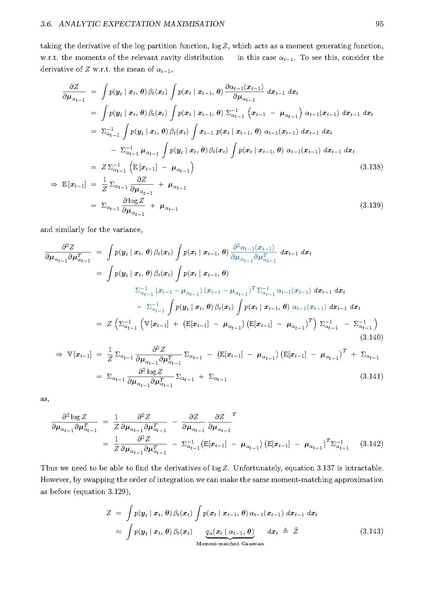 3.6. ANALYTIC EXPECTATION MAXIMISATION 95
taking the derivative of the log partition function, log Z, which acts as a moment generating function,
w.r.t. the moments of the relevant cavity distribution — in this case α_{t−1}. To see this, consider the
derivative of Z w.r.t. the mean of α_{t−1},
∂Z/∂μ_{α_{t−1}} = ∫ p(y_t | x_t, θ) β_t(x_t) ∫ p(x_t | x_{t−1}, θ) ∂α_{t−1}(x_{t−1})/∂μ_{α_{t−1}} dx_{t−1} dx_t
= ∫ p(y_t | x_t, θ) β_t(x_t) ∫ p(x_t | x_{t−1}, θ) Σ^{−1}_{α_{t−1}} (x_{t−1} − μ_{α_{t−1}}) α_{t−1}(x_{t−1}) dx_{t−1} dx_t
= Σ^{−1}_{α_{t−1}} ∫ p(y_t | x_t, θ) β_t(x_t) ∫ x_{t−1} p(x_t | x_{t−1}, θ) α_{t−1}(x_{t−1}) dx_{t−1} dx_t
− Σ^{−1}_{α_{t−1}} μ_{α_{t−1}} ∫ p(y_t | x_t, θ) β_t(x_t) ∫ p(x_t | x_{t−1}, θ) α_{t−1}(x_{t−1}) dx_{t−1} dx_t
= Z Σ^{−1}_{α_{t−1}} (E[x_{t−1}] − μ_{α_{t−1}}) (3.138)
⇒ E[x_{t−1}] = 1/Z Σ_{α_{t−1}} ∂Z/∂μ_{α_{t−1}} + μ_{α_{t−1}}
= Σ_{α_{t−1}} ∂log Z/∂μ_{α_{t−1}} + μ_{α_{t−1}} (3.139)
and similarly for the variance,
∂²Z/∂μ_{α_{t−1}}∂μ^T_{α_{t−1}} = ∫ p(y_t | x_t, θ) β_t(x_t) ∫ p(x_t | x_{t−1}, θ) ∂²α_{t−1}(x_{t−1})/∂μ_{α_{t−1}}∂μ^T_{α_{t−1}} dx_{t−1} dx_t
= ∫ p(y_t | x_t, θ) β_t(x_t) ∫ p(x_t | x_{t−1}, θ)
Σ^{−1}_{α_{t−1}} (x_{t−1} − μ_{α_{t−1}}) (x_{t−1} − μ_{α_{t−1}})^T Σ^{−1}_{α_{t−1}} α_{t−1}(x_{t−1}) dx_{t−1} dx_t
− Σ^{−1}_{α_{t−1}} ∫ p(y_t | x_t, θ) β_t(x_t) ∫ p(x_t | x_{t−1}, θ) α_{t−1}(x_{t−1}) dx_{t−1} dx_t
= Z (Σ^{−1}_{α_{t−1}} (V[x_{t−1}] + (E[x_{t−1}] − μ_{α_{t−1}}) (E[x_{t−1}] − μ_{α_{t−1}})^T) Σ^{−1}_{α_{t−1}} − Σ^{−1}_{α_{t−1}})
(3.140)
⇒ V[x_{t−1}] = 1/Z Σ_{α_{t−1}} ∂²Z/∂μ_{α_{t−1}}∂μ^T_{α_{t−1}} Σ_{α_{t−1}} − (E[x_{t−1}] − μ_{α_{t−1}}) (E[x_{t−1}] − μ_{α_{t−1}})^T + Σ_{α_{t−1}}
= Σ_{α_{t−1}} ∂² log Z/∂μ_{α_{t−1}}∂μ^T_{α_{t−1}} Σ_{α_{t−1}} + Σ_{α_{t−1}} (3.141)
as,
∂² log Z/∂μ_{α_{t−1}}∂μ^T_{α_{t−1}} = 1/Z ∂²Z/∂μ_{α_{t−1}}∂μ^T_{α_{t−1}} − ∂Z/∂μ_{α_{t−1}} ∂Z/∂μ_{α_{t−1}}^T
= 1/Z ∂²Z/∂μ_{α_{t−1}}∂μ^T_{α_{t−1}} − Σ^{−1}_{α_{t−1}} (E[x_{t−1}] − μ_{α_{t−1}}) (E[x_{t−1}] − μ_{α_{t−1}})^T Σ^{−1}_{α_{t−1}} (3.142)
Thus we need to be able to find the derivatives of log Z. Unfortunately, equation 3.137 is intractable.
However, by swapping the order of integration we can make the same moment-matching approximation
as before (equation 3.129),
Z = ∫ p(y_t | x_t, θ) β_t(x_t) ∫ p(x_t | x_{t−1}, θ) α_{t−1}(x_{t−1}) dx_{t−1} dx_t
≈ ∫ p(y_t | x_t, θ) β_t(x_t) q_α(x_t | α_{t−1}, θ) dx_t ≜ Z̃ (3.143)
Moment-matched Gaussian